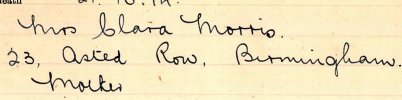 Mrs Clara Morris.
23, Asted Row, Birmingham.
Mother